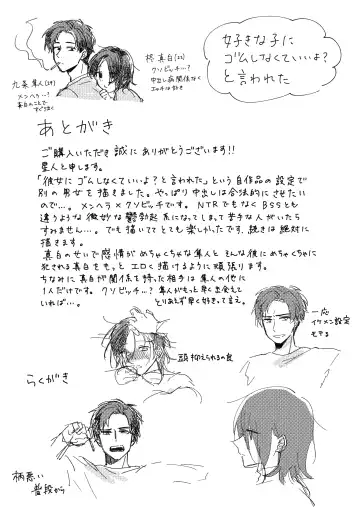 好きな子に
ゴムしなくていいよ?
と言われた
九条 隼人(29)
メンヘラ…?
真白のことで
すぐ泣く
柊 真白(22)
クソビッチ…?
中出し病関係なく
エッチは好き
あとがき
ご購入いただき誠にありがとうございます!!
星人と申します。
「彼女にゴムしなくていいよ?と言われた」という自作品の設定で
別の男女を描きました。やっぱり中出しは合法的にさせたい
ので…。メンヘラ×クソビッチです。NTRでもなくBSSとも
違うような微妙な鬱勃起系になってしまって苦手な人がいたら
すみません…。でも描いててとても楽しかったです。続きは絶対に
描きます。
真白のせいで感情がめちゃくちゃな隼人とそんな彼にめちゃくちゃに
犯される真白をもっとエロく描けるように頑張ります。
ちなみに真白が関係を持った相手は隼人の他に
1人だけです。クソビッチ…?隼人がもっと早く出会えて
いれば…。
とりあえず早く好きって言え。
頭抑えられるの良
一応
イケメン設定
モテる
らくがき
柄悪い
普段から